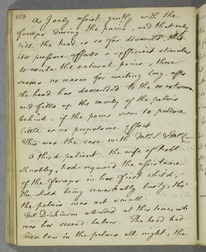 118
a I only assist gently with the
forceps during the pains, and that only
till the head is so far advanced, that
its pressure affords a sufficient stimulus
to excite the natural pains; there
seems no reason for waiting long, after
the head has descended to the
and fills up the cavity of the pelvis
behind, if the pains seem to produce
little or no proportionate effect.
This was the case with
a third patient. The wife of Robt
required the assistance
of the forceps in her first child,
the child being remarkably lusty, tho'
the pelvis was not small.
Mr Dickinson attended at this time, it
was her second labour. The head had
been low in the pelvis all night, the